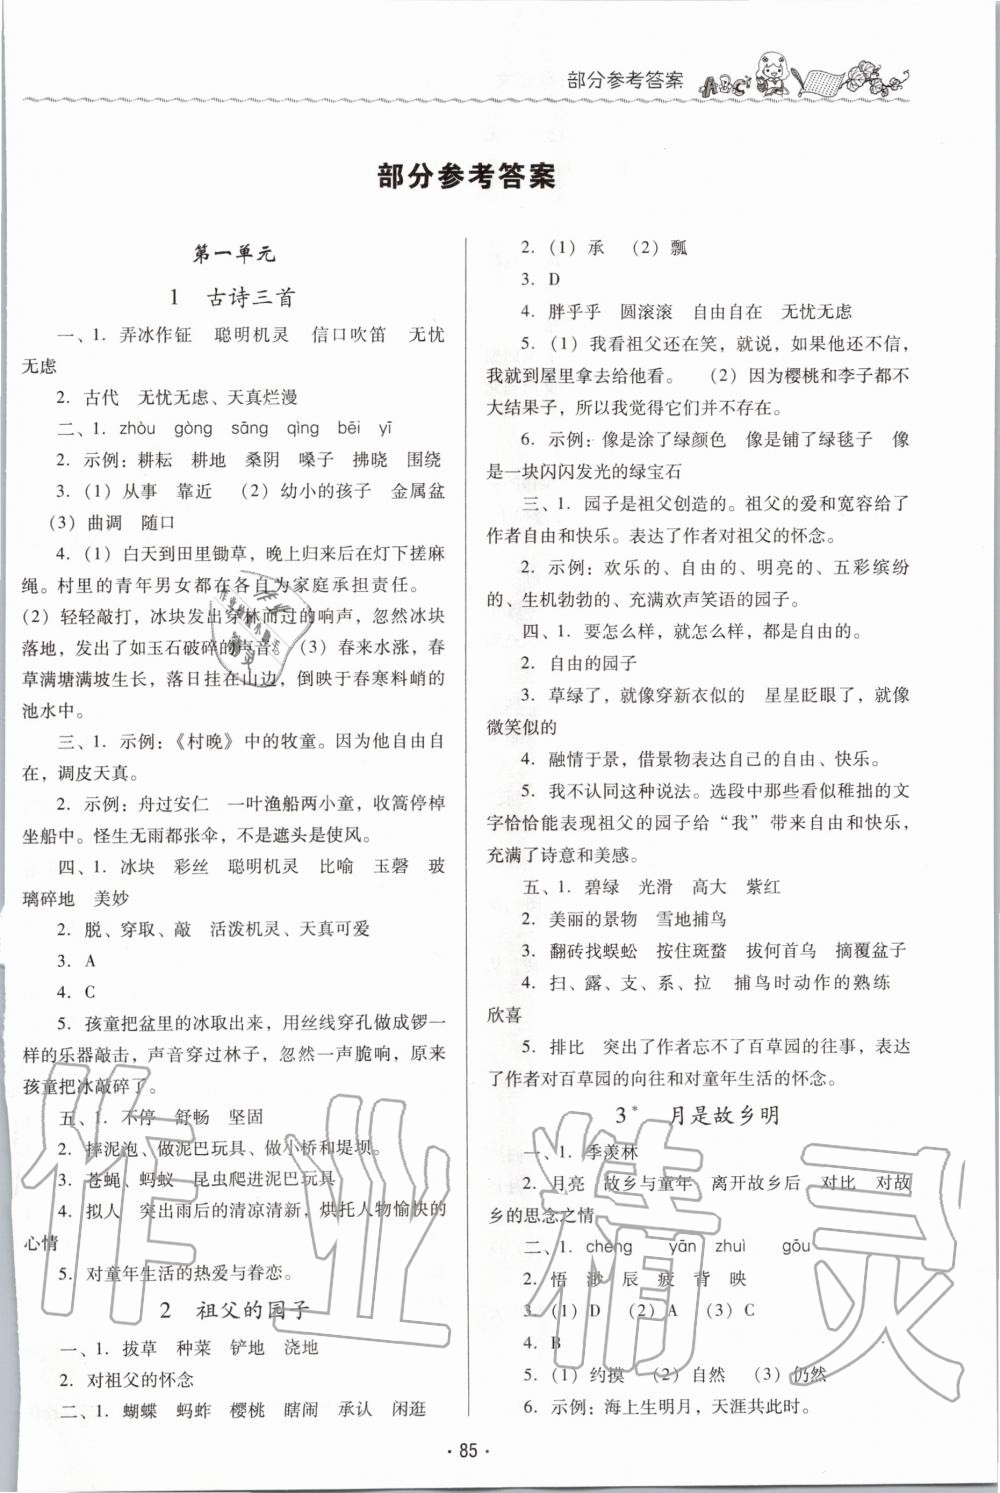 部分参考答案
部分参考答案
第一单元
1 古诗三首
一、1. 弄冰作钲 聪明机灵 信口吹笛 无忧
无虑
2. 古代 无忧无虑、天真烂漫
二、1. zhòu gòng sāng qìng bēi yī
2. 示例：耕耘 耕地 桑阴 嗓子 拂晓 围绕
3.（1）从事 靠近 （2）幼小的孩子 金属盆
（3）曲调 随口
4.（1）白天到田里锄草，晚上归来后在灯下搓麻
绳。村里的青年男女都在各自为家庭承担责任。
（2）轻轻敲打，冰块发出穿林而过的响声，忽然冰块
落地，发出了如玉石破碎的声音。（3）春来水涨，春
草满塘满坡生长，落日挂在山边，倒映于春寒料峭的
池水中。
三、1. 示例：《村晚》中的牧童。因为他自由自
在，调皮天真。
2. 示例：舟过安仁 一叶渔船两小童，收篙停棹
坐船中。怪生无雨都张伞，不是遮头是使风。
四、1. 冰块 彩丝 聪明机灵 比喻 玉磬 玻
璃碎地 美妙
2. 脱、穿取、敲 活泼机灵、天真可爱
3. A
4. C
5. 孩童把盆里的冰取出来，用丝线穿孔做成锣一
样的乐器敲击，声音穿过林子，忽然一声脆响，原来
孩童把冰敲碎了。
五、1. 不停 舒畅 坚固
2. 摔泥泡、做泥巴玩具、做小桥和堤坝。
3. 苍蝇、蚂蚁 昆虫爬进泥巴玩具
4. 拟人 突出雨后的清凉清新，烘托人物愉快的
心情
5. 对童年生活的热爱与眷恋。
2 祖父的园子
一、1. 拔草 种菜 铲地 浇地
2. 对祖父的怀念
二、1. 蝴蝶 蚂蚱 樱桃 瞎闹 承认 闲逛
2.（1）承 （2）瓢
3. D
4. 胖乎乎 圆滚滚 自由自在 无忧无虑
5.（1）我看祖父还在笑，就说，如果他还不信，
我就到屋里拿去给他看。 （2）因为樱桃和李子都不
大结果子，所以我觉得它们并不存在。
6. 示例：像是涂了绿颜色 像是铺了绿毯子 像
是一块闪闪发光的绿宝石
三、1. 园子是祖父创造的。祖父的爱和宽容给了
作者自由和快乐。表达了作者对祖父的怀念。
2. 示例：欢乐的、自由的、明亮的、五彩缤纷
的、生机勃勃的、充满欢声笑语的园子。
四、1. 要怎么样，就怎么样，都是自由的。
2. 自由的园子
3. 草绿了，就像穿新衣似的 星星眨眼了，就像
微笑似的
4. 融情于景，借景物表达自己的自由、快乐。
5. 我不认同这种说法。选段中那些看似稚拙的文
字恰恰能表现祖父的园子给“我”带来自由和快乐，
充满了诗意和美感。
五、1. 碧绿 光滑 高大 紫红
2. 美丽的景物 雪地捕鸟
3. 翻砖找蜈蚣 按住斑蝥 拔何首乌 摘覆盆子
4. 扫、露、支、系、拉 捕鸟时动作的熟练
欣喜
5. 排比 突出了作者忘不了百草园的往事，表达
了作者对百草园的向往和对童年生活的怀念。
3* 月是故乡明
一、1. 季羡林
2. 月亮 故乡与童年 离开故乡后 对比 对故
乡的思念之情
二、1. chéng yān zhuì gōu
2. 悟 渺 辰 疲 背 映
3.（1）D （2）A （3）C
4. B
5.（1）约摸 （2）自然 （3）仍然
6. 示例：海上生明月，天涯共此时。
· 85 ·
作业精灵